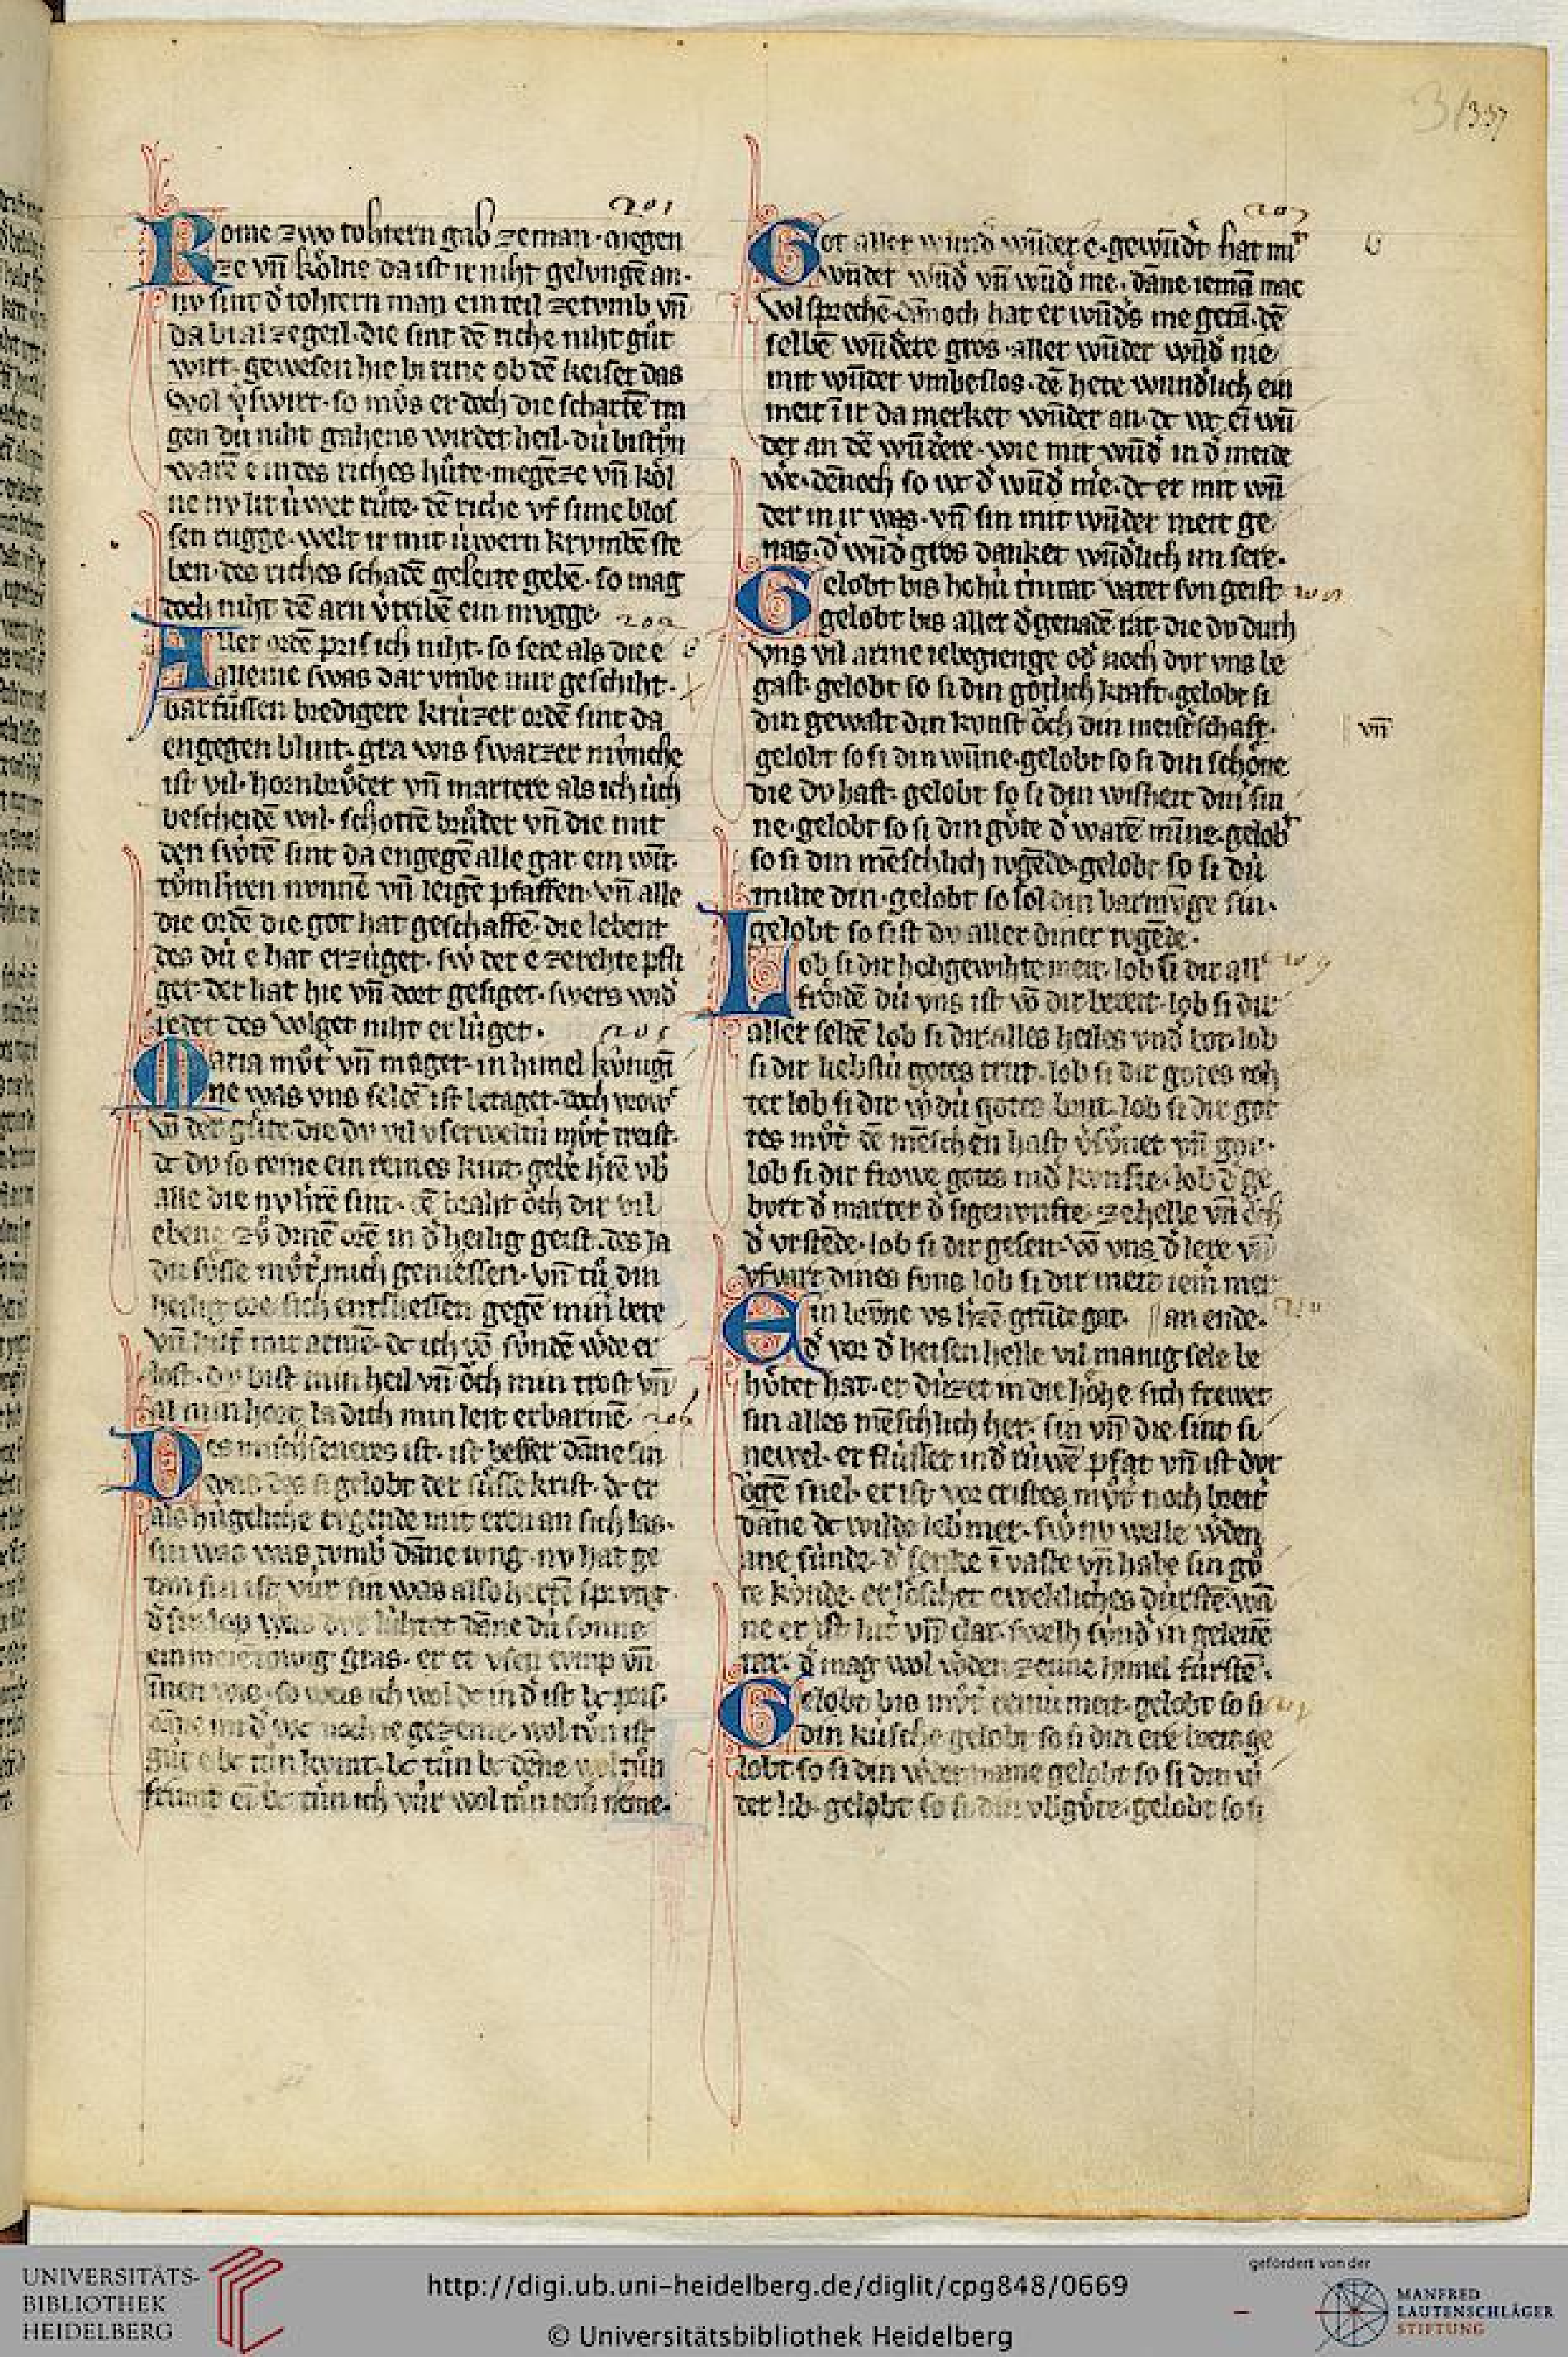 337
201
Rome zwo tohtern gab ze man · megen
ze vn̄ kölne da ist ir niht gelungē an ·
nv sint d̾ tohtern man ein teil ze tvmb vn̄
da bi al ze geil · die sint dē riche niht gůt
wirt · gewesen hie bi rine ob dē keiser das
wol v̾swirt · so můs er doch die schartē
gen dú niht gahens wirdet heil · dú bistv̊n
warē e in des riches hůte · megēze vn̄ köl
ne nv lit úwer růte · dē riche vf sime blos
sen rugge · welt ir mit úwern krvmbē ste
ben · des riches schadē geleite gebē · so mag
doch niht dē arn v̾tribē ein mvgge ·
202
Aller ordē pris ich niht · so sere als die e
alleine swas dar vmbe mir geschiht ·
barfůssen bredigere krúzer ordē sint da
engegen blint · gra wis swarzer múnche
ist vil · hornbrůder vn̄ martere als ich úch
bescheidē wil · schottē brůder vn̄ die mit
den swtē sint da engegē alle gar ein wīt ·
tůmh̾ren nvnnē vn̄ leigē pfaffen · vn̄ alle
die ordē die got hat geschaffē · die lebent
des dú e hat erzúget · sw̾ der e ze rehte pfli
get · der hat hie vn̄ dort gesiget · swers wid̾
redet des volget niht er lúget ·
Maria můt̾ vn̄ maget · in himel kúnigī
ne was vns seldē ist betaget · doch vrow̾
vō der gůte · die dv vil vserweltú můt̾ treist ·
dc dv so reine ein reines kint · gebe h̾rē vb̾
alle die nv h̾rē sint · dē braht öch dir vil
ebene zů dinē orē in d̾ heilig geist · des la
du sůsse můt̾ mich geniessen · vn̄ tů din
heilig ore sich entsliessen gegē min̾ bete
vn̄ hilf mir armē · dc ich vō súndē w̾de er
lost · dv bist min heil vn̄ öch min trost vn̄
al min hort la dich min leit erbarmē
206
Des ist · ist besser dāne sin
was des si gelobt der sůsse krist · dc er
als húgeliche tvgende mit eren an sich las ·
sin was was tvmb̾ dāne iung · nv hat ge
tan sin ist vúr sin was also hertē sprvng
dāne dú sonne
gras · er
so weis ich wol dc in d̾ ist
wol tůn ist
gůt
tůn ich vúr wol tůn
207
Got aller wund̾ wūdere · gewūd̾t hat mit
wūder wūd̾ vn̄ wūd̾ me · dāne iemā mac
vol sprechē · dānoch hat er wūd̾s me getā · dē
selbē wūdere gros · aller wūder wūd̾ nie
mit wūder vmbeslos · dē hete wundlich ein
meit ī ir da merket wūder an · dc wc eī wū
der an dē wūdere · wie mit wūd̾ in d̾ meide
w̾e · dēnoch so wc d̾ wūd̾ me · dc er mit wū
der in ir was · vn̄ sin mit wūder meit ge
nas · d̾ wūd̾ gros danket wūdlich im sere ·
Gelobt bis hohú t̾nitat vater svn geist
gelobt bis aller d̾ genadē rat · die dv durh
vns vil arme ie begienge od̾ noch dvr vns be
gast · gelobt so si din götlich kraft · gelobt si
din gewalt din kvnst öch din meist̾schaft ·
vn̄
gelobt so si din wūne · gelobt so si din schöne
die dv hast · gelobt so si din wisheit din sin
ne · gelobt so si din gůte d̾ warē mīne · gelob̾t
so si din mēschlich tvgēde · gelobt so si dú
milte din · gelobt so sol din barmvge sin ·
gelobt so sist dv aller diner tvgēde ·
Lob si dir hohgewihte meit · lob si dir all̾
fröidē dú vns ist vō dir bereit · lob si dir
aller seldē lob si dir alles heiles vnd̾ bot · lob
si dir liebstú gotes trut · lob si dir gotes toh
ter lob si dir w̾dú gottes brut · lob si dir got
tes můt̾ dē mēschen hast v̾sůnet vn̄ got ·
lob si dir frowe gotes nid̾ kvnfte · lob d̾ ge
burt d̾ marter d̾ sigenvnfte · ze helle vn̄ öch
d̾ vrstēde · lob si dir geseit · vō vns d̾ lere vn̄
vfvart dines svns lob si dir meit iem̾ mer
an ende ·
Ein brvne vs h̾zē grūde gat ·
d̾ vor d̾ heissen helle vil manig sele be
hůtet hat · er dúzet in die höhe sich frewet
sin alles mēschlich her · sin vn̄ die sint si
newel · er flússet in d̾ rúwē pfat vn̄ ist dvr
ögē snel · er ist vor cristes můt̾ noch breit̾
dāne dc wilde leb̾mer · sw̾ nv welle w̾den
ane súnde · d̾ senke ī vaste vn̄ habe sin gů
te kúnde · er löschet ewekliches dúrstē · wā
ne er ist lut̾ vn̄ clar · swelh súnd̾ in geleitē
tar · d̾ mag wol w̾den zeime himel fúrstē ·
Gelobt bis můt̾ reinú meit · gelobt so si
din kúsche gelobt so si din ere breit ge
lobt so si din name gelobt so si din
der lib · gelobt so si din gůte · gelobt so si
UNIVERSITÄTS-
BIBLIOTHEK
HEIDELBERG
http://digi.ub.uni-heidelberg.de/diglit/cpg848/0669
© Universitätsbibliothek Heidelberg
gefördert von der
MANFRED
LAUTENSCHLÄGER
STIFTUNG